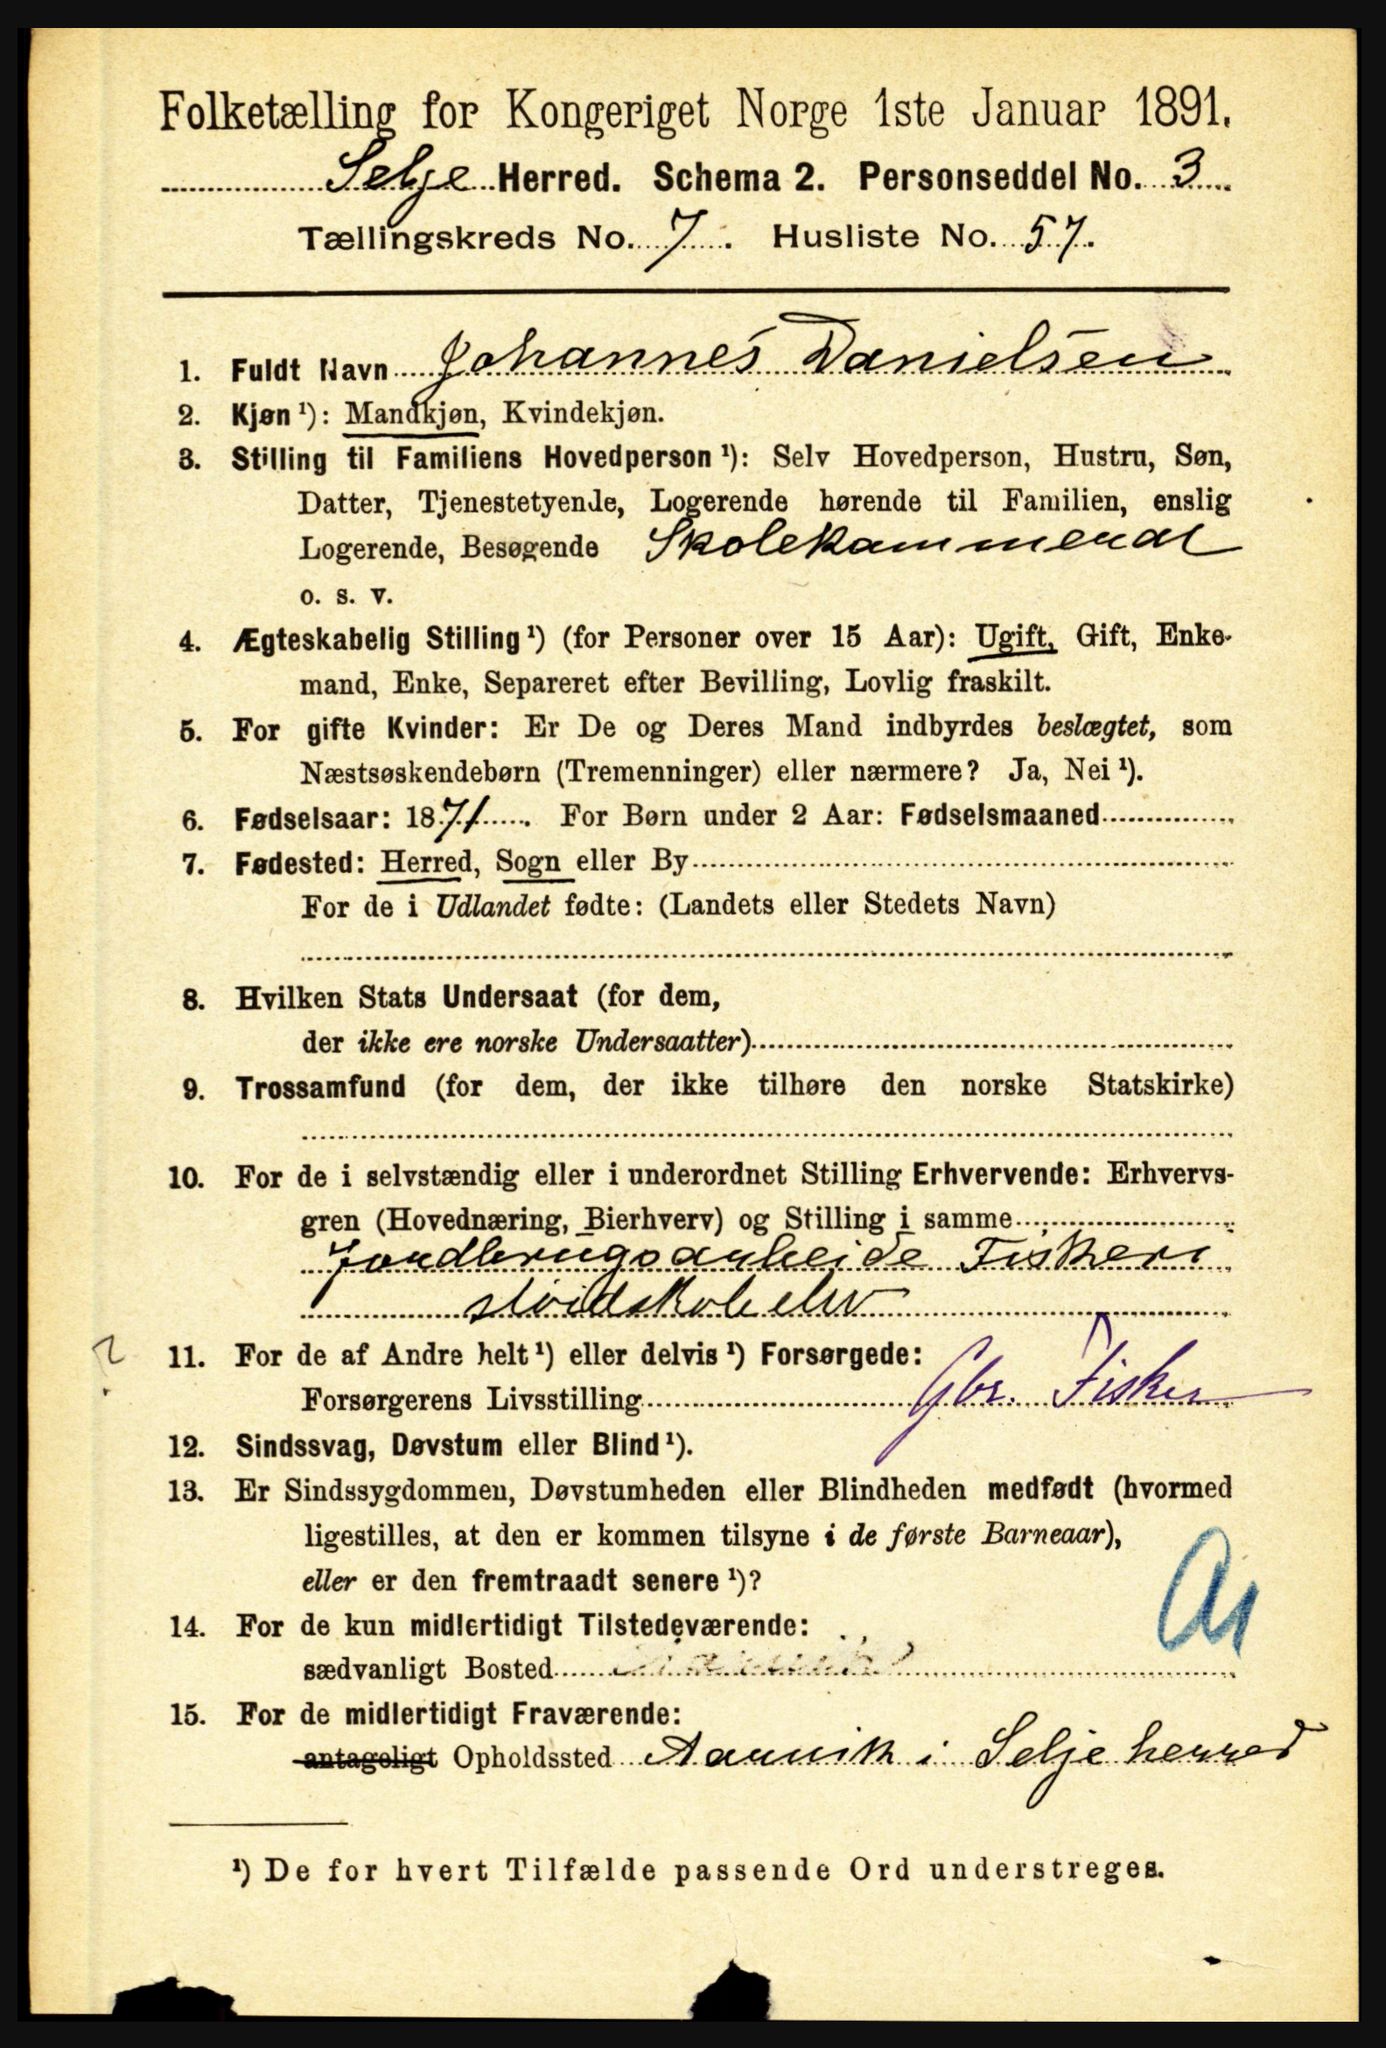 Folketælling for Kongeriget Norge 1ste Januar 1891.
Selje Herred. Schema 2. Personseddel No. 3
Tællingskreds No. 7. Husliste No. 57.
1. Fuldt Navn Johannes Danielsen
2. Kjøn ¹): Mandkjøn, Kvindekjøn.
3. Stilling til Familiens Hovedperson ¹): Selv Hovedperson, Hustru, Søn,
Datter, Tjenestetyende, Logerende hørende til Familien, enslig
Logerende, Besøgende Skolekammerat
o. s. v.
4. Ægteskabelig Stilling ¹) (for Personer over 15 Aar): Ugift, Gift, Enke-
mand, Enke, Separeret efter Bevilling, Lovlig fraskilt.
5. For gifte Kvinder: Er De og Deres Mand indbyrdes beslægtet, som
Næstsøskendebørn (Tremenninger) eller nærmere? Ja, Nei ¹).
6. Fødselsaar: 1871. For Børn under 2 Aar: Fødselsmaaned
7. Fødested: Herred, Sogn eller By
For de i Udlandet fødte: (Landets eller Stedets Navn)
8. Hvilken Stats Undersaat (for dem,
der ikke ere norske Undersaatter)
9. Trossamfund (for dem, der ikke tilhøre den norske Statskirke)
10. For de i selvstændig eller i underordnet Stilling Erhvervende: Erhvervs-
gren (Hovednæring, Bierhverv) og Stilling i samme
Jordbrugsarbeide Fiskeri
sløidskoleelev
? 11. For de af Andre helt ¹) eller delvis ¹) Forsørgede:
Forsørgerens Livsstilling Gbr. Fisker
12. Sindssvag, Døvstum eller Blind ¹).
13. Er Sindssygdommen, Døvstumheden eller Blindheden medfødt (hvormed
ligestilles, at den er kommen tilsyne i de første Barneaar),
eller er den fremtraadt senere ¹)?
14. For de kun midlertidigt Tilstedeværende:
sædvanligt Bosted
15. For de midlertidigt Fraværende:
antageligt Opholdssted Aarvik i Selje herred
¹) De for hvert Tilfælde passende Ord understreges.